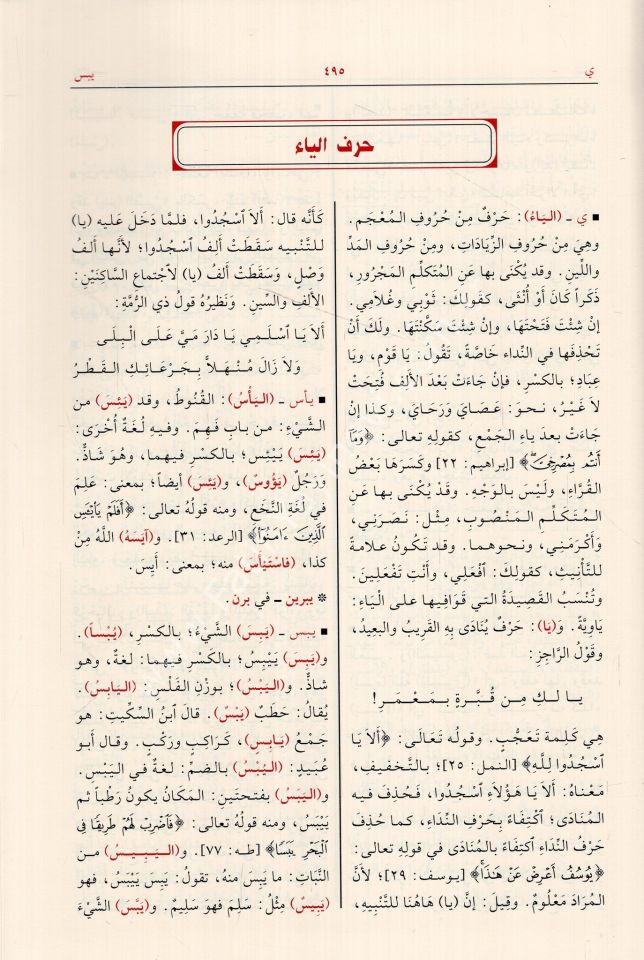 ي
٤٩٥
يبس
حرف الياء
■ ي ـ (اليَاءُ): حَرْفٌ مِنْ حُرُوفِ المُعْجَمِ.
وهِيَ مِنْ حُرُوفِ الزِّيَادَاتِ، ومِنْ حُرُوفِ المَدِّ
واللِّينِ. وقد يُكْنَى بها عَنِ المُتَكَلِّمِ المَجْرُورِ،
ذَكَرَاً كَانَ أَوْ أُنْثَى، كقَولِكَ: ثَوْبِي وغُلَامِي.
إِنْ شِئْتَ فَتَحْتَهَا، وإِنْ شِئْتَ سَكَّنْتَهَا. ولَكَ أَنْ
تَحْذِفَها في النِّداء خَاصَّةً، تَقُولُ: يَا قَوْمِ، ويَا
عِبَادِ؛ بالكَسْرِ، فإِنْ جَاءَتْ بَعْدَ الأَلِفِ فُتِحَتْ
لَا غَيْرُ، نحوَ: عَصَايَ وَرَحَايَ، وكذا إِنْ
جَاءَتْ بعدَ ياءِ الجَمْعِ، كقَولِهِ تعالى: ﴿وَمَآ
أَنتُم بِمُصْرِخِيَّ﴾ [إبراهيم: ٢٢] وكَسَرَها بَعْضُ
القُرَّاءِ، ولَيْسَ بالوَجْهِ. وقَدْ يُكْنَى بها عَنِ
المُتَكَلِّمِ المَنْصُوبِ، مِثْلُ: نَصَرَنِي،
وَأَكْرَمَنِي، ونحوِهما. وقد تَكُونُ عَلامةً
للتَّأْنِيثِ، كقولِكَ: افْعَلِي، وأَنْتِ تَفْعَلِينَ.
وتُنْسَبُ القَصِيدَةُ التي قَوَافِيها على اليَاءِ:
يَاوِيَّةً. و(يَا): حَرْفٌ يُنَادَى بِهِ القَرِيبُ والبعِيدُ،
وقَوْلُ الرَّاجِزِ:
يا لكِ مِن قُبَّرةٍ بمَعْمَرِ!
هِي كَلِمة تَعَجُّبٍ. وقولُه تَعَالَى: ﴿أَلَا يَا
اسْجُدُوا لِلَّهِ﴾ [النمل: ٢٥]؛ بالتَّخفِيفِ،
مَعْنَاهُ: أَلَا يَا هَؤُلَاءِ اسْجُدُوا، فَحُذِفَ فيه
المُنَادَى؛ اكْتِفَاءً بحَرْفِ النِّدَاءِ، كما حُذِفَ
حَرْفُ النِّدَاءِ اكْتِفَاءً بالمُنَادَى في قولِهِ تعالى:
﴿يُوسُفُ أَعْرِضْ عَنْ هَٰذَا﴾ [يوسف: ٢٩]؛ لأَنَّ
المُرَادَ مَعْلُومٌ. وقِيلَ: إنَّ (يا) هَاهُنَا للتَّنْبِيهِ،
كَأَنَّه قال: أَلَا اسْجُدُوا، فلمَّا دَخَلَ عليه (يا)
للتَّنْبيه سَقَطَتْ أَلِفُ اسْجُدُوا؛ لأنَّها أَلِفُ
وَصْلٍ، وَسَقَطَتْ أَلِفُ (يا) لاجْتِماعِ السَّاكِنَيْنِ:
الأَلفِ والسِّينِ. ونَظيرُهُ قولُ ذي الرُّمَّةِ:
أَلَا يَا اسْلَمِي يَا دَارَ مَيَّ عَلَى الْبِلَى
وَلَا زَالَ مُنْهَلَّاً بِجَرْعَائِكِ القَطْرُ
■ يأس ـ (اليَأْسُ): القُنُوطُ، وقد (يَئِسَ) من
الشَّيْءِ: من بابِ فَهِمَ. وفيهِ لُغَةٌ أُخْرَى:
(يَئِسَ) يَيْئِسُ؛ بالكَسْرِ فيهما، وهو شَاذٌّ.
وَرَجُلٌ (يَؤُوسٌ)، و(يَئِسَ) أيضاً؛ بمعنى: عَلِمَ
في لُغَةِ النَّخَعِ، ومنه قولُهُ تعالى: ﴿أَفَلَمْ يَا۟يْـَٔسِ
ٱلَّذِينَ ءَامَنُوٓا۟﴾ [الرعد: ٣١]. و(آيَسَهُ) اللَّهُ مِنْ
كذا، (فاسْتَيْأَسَ) منه؛ بمعنى: أَيِسَ.
* يبرين ـ في برن.
■ يبس ـ (يَبِسَ) الشَّيْءُ؛ بالكَسْرِ، (يُبْساً).
و(يَبِسَ) يَيْبِسُ؛ بالكَسْرِ فيهما: لغةٌ، وهو
شَاذٌّ. و(اليَبْسُ)؛ بوَزْنِ الفَلْسِ: (اليَابِسُ).
يُقالُ: حَطَبٌ (يَبْسٌ). قال ابنُ السِّكِّيتِ: هو
جَمْعُ (يَابِسٍ)، كَرَاكِبٍ ورَكْبٍ. وقال أبو
عُبَيدٍ: (اليُبْسُ) بالضَّمِّ: لُغةٌ في اليَبْسِ.
و(اليَبَسُ) بفتحتينِ: المَكَانُ يكونُ رَطْباً ثم
يَيْبَسُ، ومنه قولُهُ تعالى: ﴿فَٱضْرِبْ لَهُمْ طَرِيقًا فِى
ٱلْبَحْرِ يَبَسًا﴾ [طه: ٧٧]. و(اليَبِيسُ) من
النَّبَاتِ: ما يَبِسَ منهُ، تقولُ: يَبِسَ يَيْبَسُ، فهو
(يَبِيسٌ) مِثْلُ: سَلِمَ فهو سَلِيمٌ. و(يَبَّسَ) الشَّيْءَ